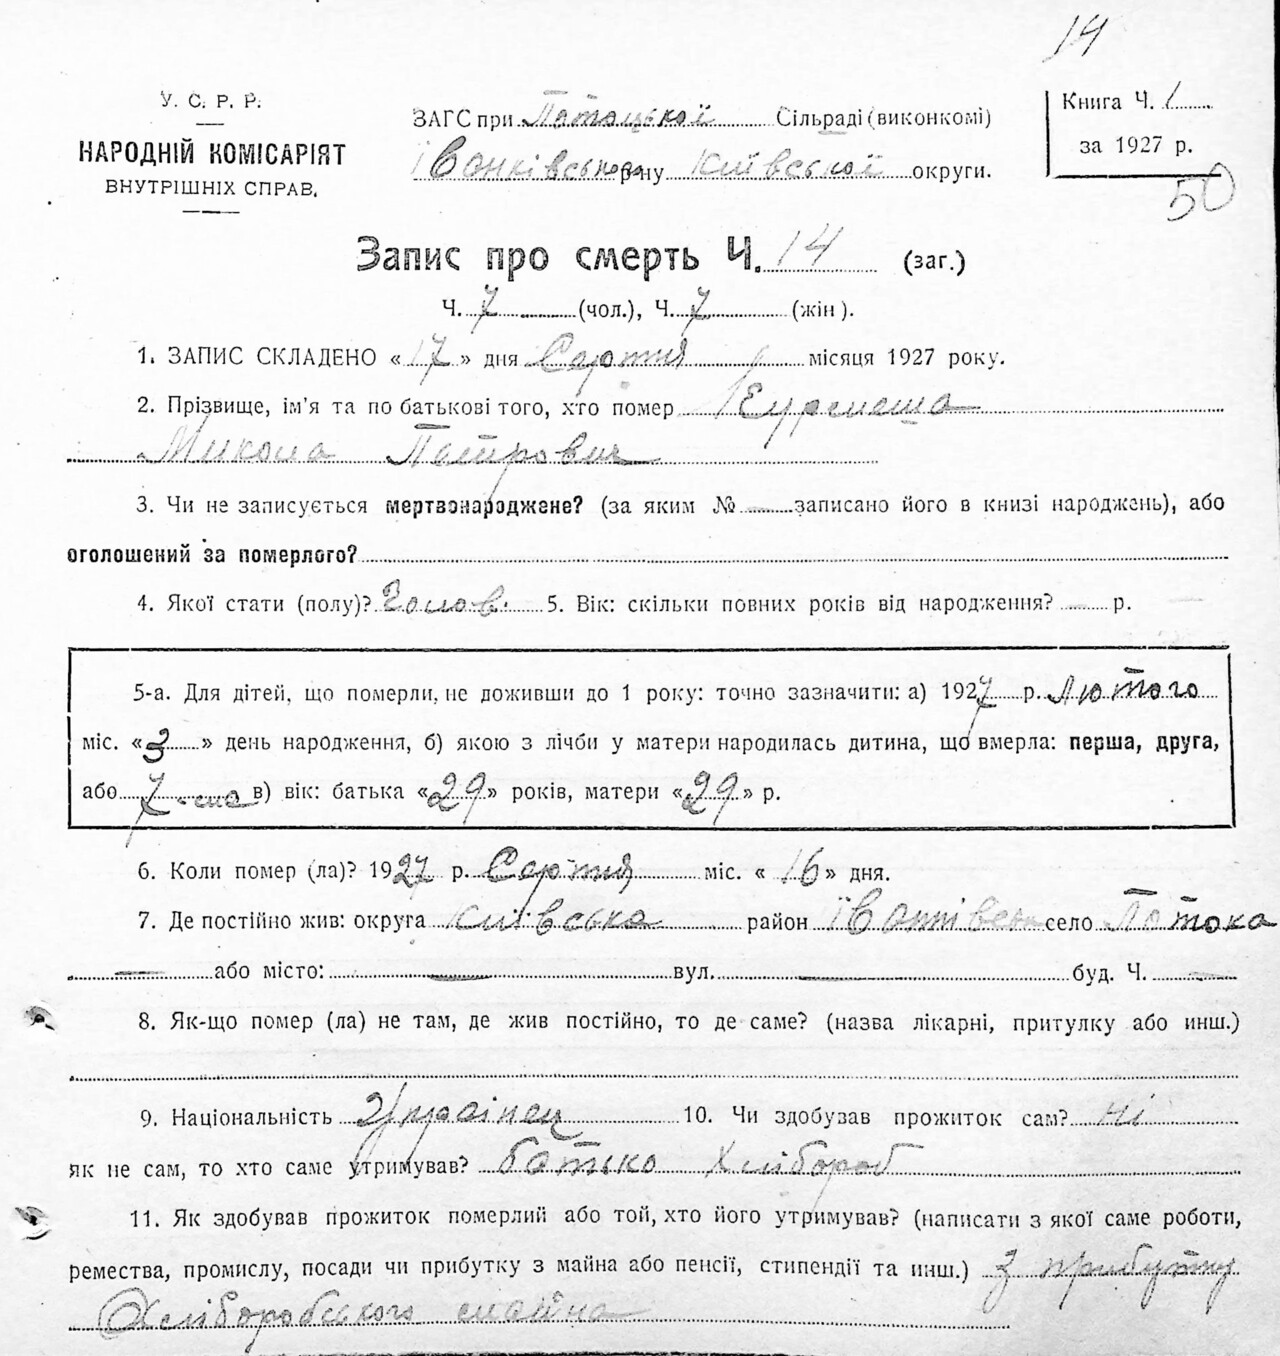 14
У. С. Р. Р.
НАРОДНІЙ КОМІСАРІЯТ
ВНУТРІШНІХ СПРАВ.
ЗАГС при Потоцької Сільраді (виконкомі)
Іванківсько р-ну Київської округи.
Книга Ч. 1
за 1927 р.
50
Запис про смерть Ч. 14 (заг.)
Ч. 7 (чол.), Ч. 7 (жін).
1. ЗАПИС СКЛАДЕНО « 17 » дня Серпня місяця 1927 року.
2. Прізвище, ім'я та по батькові того, хто помер
Микола Петрович
3. Чи не записується мертвонароджене? (за яким № — записано його в книзі народжень), або
оголошений за померлого?
4. Якої стати (полу)? Чолов. 5. Вік: скільки повних років від народження? — р.
5-а. Для дітей, що померли, не доживши до 1 року: точно зазначити: а) 1927 р. Лютого
міс. « 3 » день народження, б) якою з лічби у матери народилась дитина, що вмерла: перша, друга,
або 7-ма в) вік: батька « 29 » років, матери « 29 » р.
6. Коли помер (ла)? 1927 р. Серпня міс. « 16 » дня.
7. Де постійно жив: округа Київська район Іванківськ село Потока
— або місто: — вул. — буд. Ч. —
8. Як-що помер (ла) не там, де жив постійно, то де саме? (назва лікарні, притулку або инш.)
9. Національність Українец 10. Чи здобував прожиток сам? Ні
як не сам, то хто саме утримував? батько Хлібороб
11. Як здобував прожиток померлий або той, хто його утримував? (написати з якої саме роботи,
ремества, промислу, посади чи прибутку з майна або пенсії, стипендії та инш.) З прибутку
Хліборобського майна